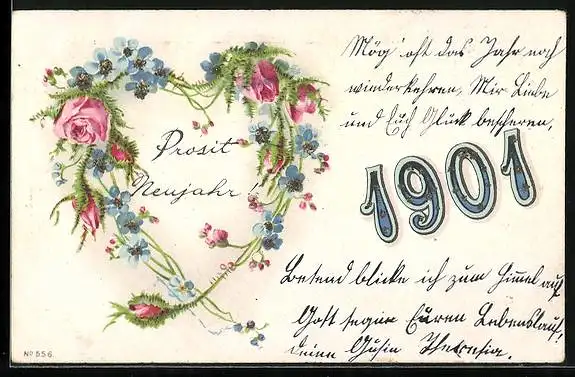 Prosit
Neujahr!
Mög' oft das Jahr noch
wiederkehren, Mir Liebe
und Euch Glück bescheren,
1901
Betend blicke ich zum Himmel auf
Gott segne Euren Lebenslauf,
deine Theresia.
No 556.